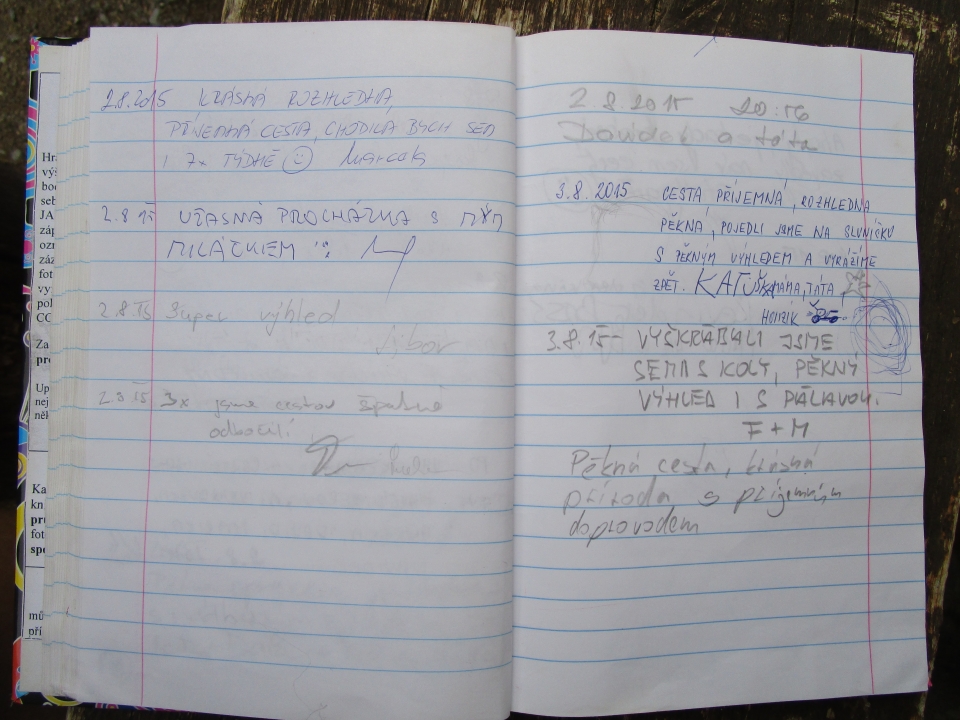 2.8.2015 KRÁSNÁ ROZHLEDNA,
PŘÍJEMNÁ CESTA, CHODILA BYCH SEM
I 7x TÝDNĚ ☺
2.8.15 ÚŽASNÁ PROCHÁZKA S MÝM
MILÁČKEM :)
2.8.15 Super výhled
Libor
2.8.15 3x jsme cestou špatně
odbočili
2.8.2015 20:56
a táta
3.8.2015 CESTA PŘÍJEMNÁ, ROZHLEDNA
PĚKNÁ, POJEDLI JSME NA SLUNÍČKU
S PĚKNÝM VÝHLEDEM A VYRÁŽÍME
ZPĚT. KATUŠKA, MÁMA, TÁTA,
HONZÍK
3.8.15 – VYŠKRÁBALI JSME
SEM I S KOLY, PĚKNÝ
VÝHLED I S PÁLAVOU.
F + M
Pěkná cesta, krásná
příroda s příjemným
doprovodem
Hr
výš
bo
seb
JA
záp
ozn
záz
fot
vy
pol
CC
Za
pro
Up
nej
něk
Ka
kn
pro
fot
spe
mů
pří